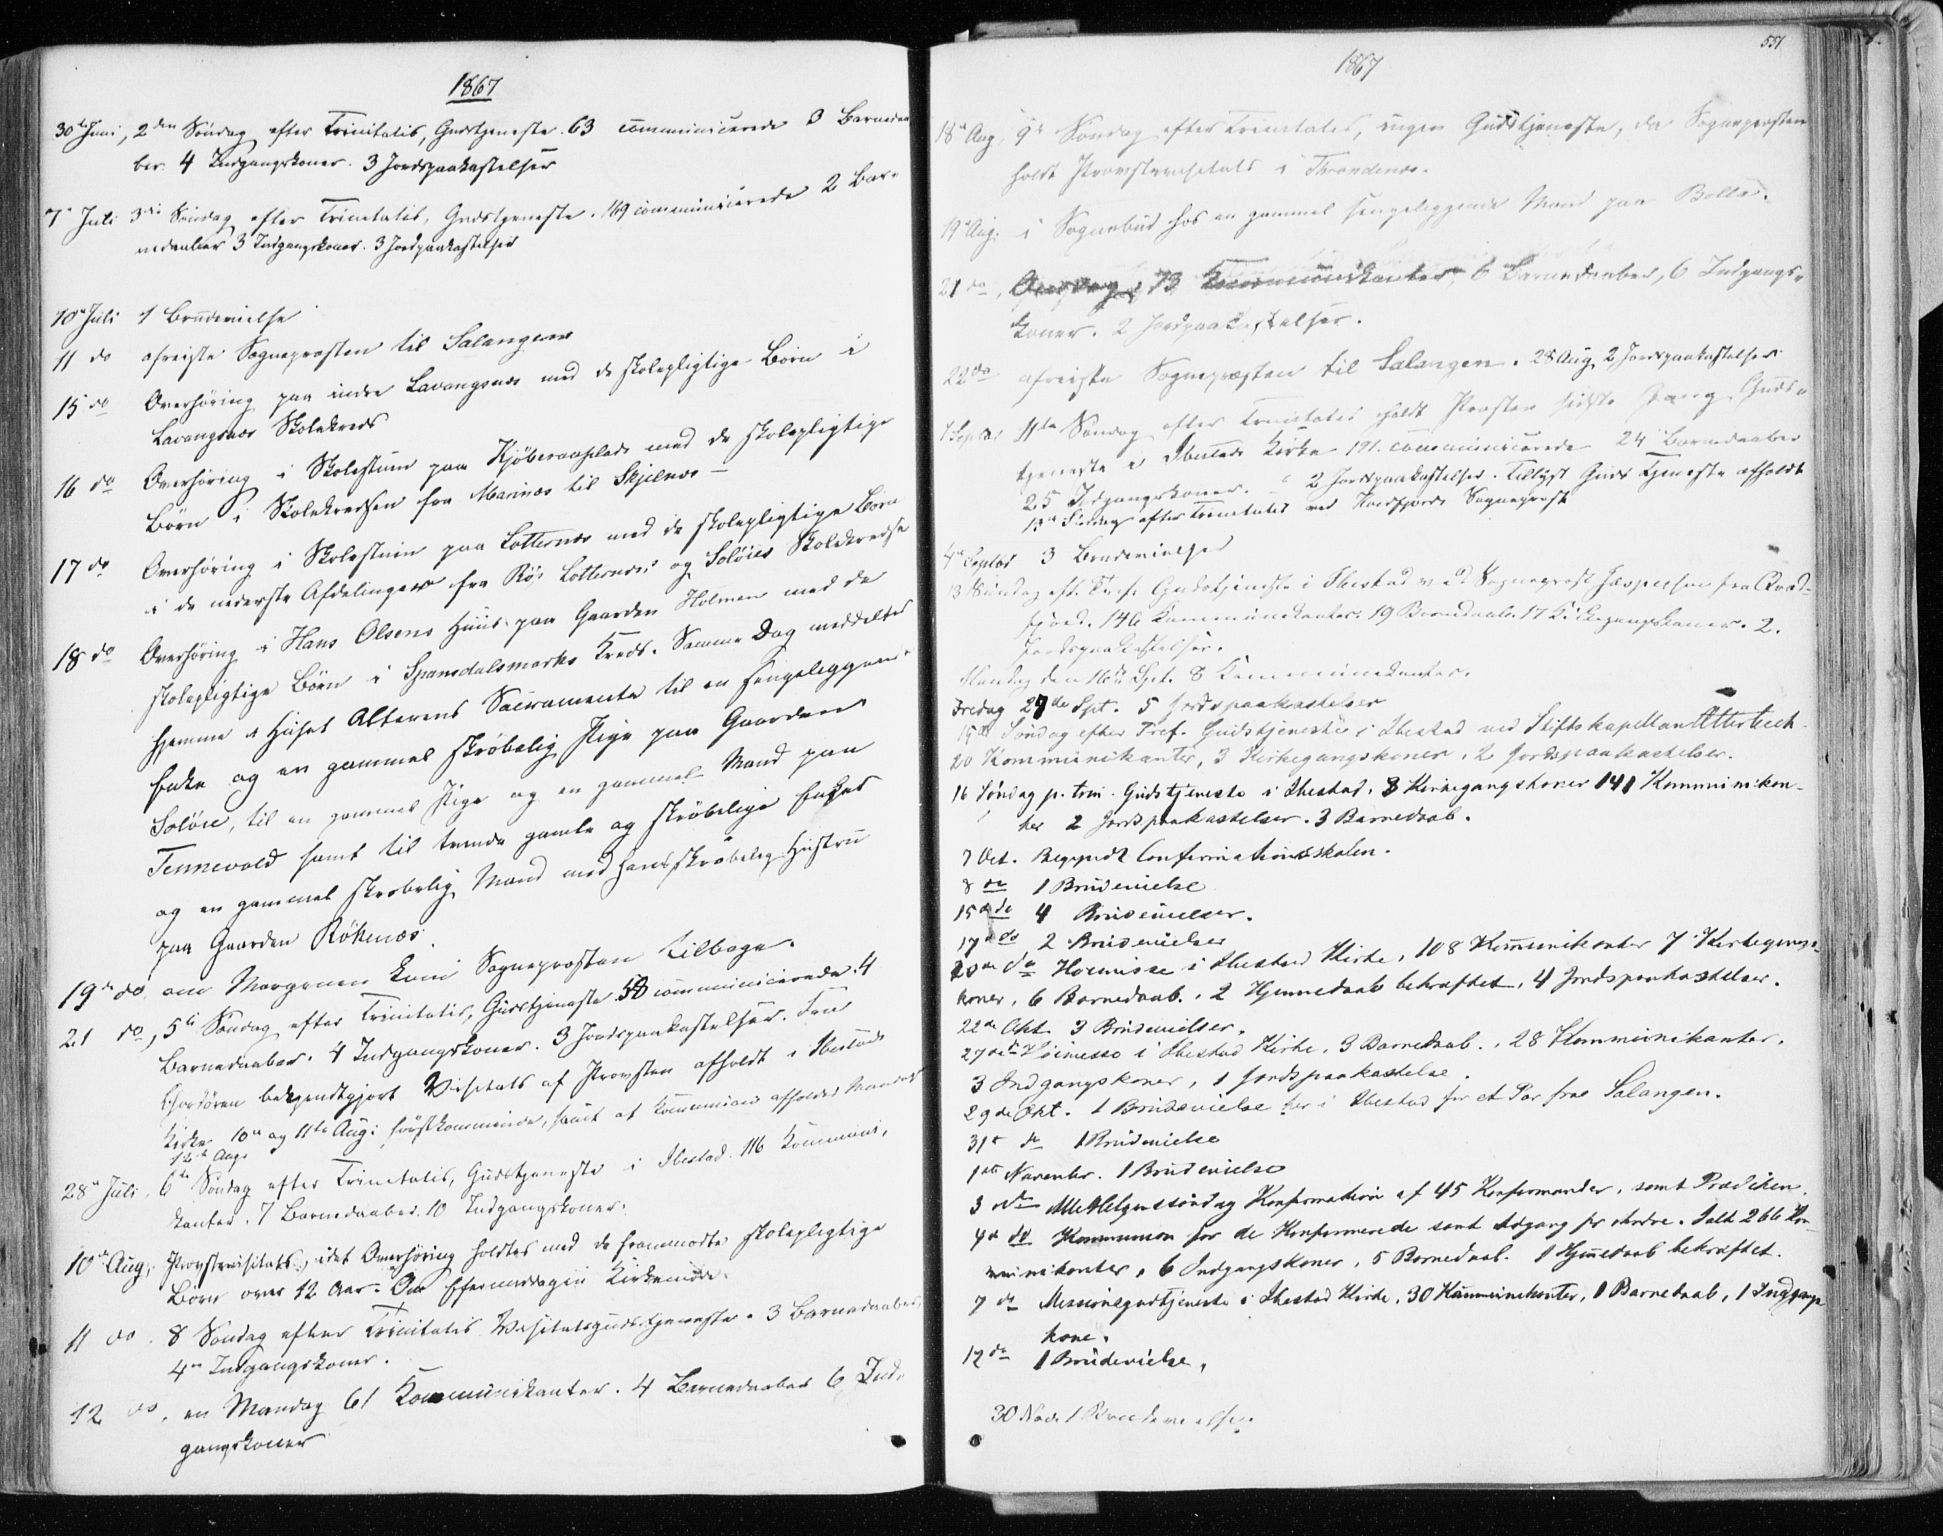 1867
30te Juni, 2den Søndag efter Trinitatis, Gudstjeneste. 63 communicerede 3 Barnedaa-
ber. 4 Indgangskoner. 3 Jordspaakastelser
7de Juli 3die Søndag efter Trinitatis, Gudstjeneste. 119 communicerede 2 Bar-
nedaaber 3 Indgangskoner. 3 Jordpaakastelser
10de Juli 1 Brudevielse
11 do afreiste Sognepræsten til Salangen
15 do Overhøring paa indre Lavangsnæs med de skolepligtige Børn i
Lavangsnæs Skolekreds
16 do Overhøring i Skolestuen paa Kjøbmandsplads med de skolepligtige
Børn i Skolekredsen fra Marinæs til Skjelnæs –
17 do Overhøring i Skolestuen paa Lotternæs med de skolepligtige Børn
i de nederste Afdelinger fra Lotternæs og Soløies Skolekredse
18 do Overhøring i Hans Olsens Huus paa Gaarden Holmen med de
skolepligtige Børn i Spansdalsmarks Kreds. Samme Dag meddeltes
hjemme i Huset Alterens Sacramente til en sengeliggen-
de Enke og en gammel skrøbelig Pige paa Gaarden
Soløie, til en gammel Pige og en gammel Mand paa
Tennevold samt til tvende gamle og skrøbelige Enker
og en gammel skrøbelig Mand med hans skrøbelig Hustru
paa Gaarden Røkenæs.
19de do om Morgenen kom Sognepræsten tilbage.
21 do, 5te Søndag efter Trinitatis, Gudstjeneste 58 communicerede. 4
Barnedaaber. 4 Indgangskoner. 3 Jordspaakastelser. Fra
Chordøren bekjendtgjort Visitats af Provsten afholdt i Ibestads
Kirke 10de og 11te Aug: førstkommende, samt at Communion afholdes Mandag
12te Aug.
28de Juli, 6te Søndag efter Trinitatis, Gudstjeneste i Ibestad. 116 Kommuni-
kanter. 7 Barnedaaber. 10 Indgangskoner.
10de Aug: Provstevisitats, idet Overhøring holdtes med de fremmødte skolepligtige
Børn over 12 Aar. Om Eftermiddagen Kirkemøde.
11 do. 8 Søndag efter Trinitatis Visitatsgudstjeneste. 3 Barnedaaber,
4re Indgangskoner.
12 do. en Mandag 61 Kommunikanter. 4 Barnedaaber 6 Ind-
gangskoner
551
1867
18de Aug. 9de Søndag efter Trinitatis, ingen Gudstjeneste, da Sognepræsten
holdt Provstevisitats i Throndenæs.
19de Aug: i Sognebud hos en gammel sengeliggende Mand paa Bolla.
21 do, 13 Kommunikanter, 6 Barnedaaber, 6 Indgangs-
koner. 2 Jordpaakastelser.
22 do afreiste Sognepræsten til Salangen. 28 Aug 2 Jordspaakastelser
1 Septbr 11te Søndag efter Trinitatis holdt Præsten sidste Gang Guds-
tjeneste i Ibestads Kirke 191 communicerede 24 Barnedaaber
25 Indgangskoner. 2 Jordspaakastelser. Tillyst Guds Tjeneste afholdt
13de Søndag efter Trinitatis ved Kvædfjords Sognepræst
4de Septbr 3 Brudevielser
13 Søndag eft. Tref. Gudstjeneste i Ibestad ved Sognepræst Jespersen fra Qvæd-
fjord. 146 Kommunikanter. 19 Barnedaab. 17 Kirkegangskoner. 2.
Jordspaakastelser.
Mandag den 16de Spt. 8 Kommunikanter.
Fredag 27de Spt. 5 Jordspaakastelser
15de Søndag efter Tref. Gudstjeneste i Ibestad ved Stiftskapellan Atterbech.
20 Kommunikanter, 3 Kirkegangskoner, 2 Jordspaakastelser.
16 Søndag p. trin. Gudstjeneste i Ibestad. 8 Kirkegangskoner 141 Kommunikan-
ter 2 Jordspaakastelser. 3 Barnedaab.
7 Oct. Begyndt Confirmationsskolen.
8 do 1 Brudevielse
15de do 4 Brudevielser.
17de do 2 Brudevielser
20de do Høimisse i Ibestad Kirke, 108 Kommunikanter 7 Kirkegangs-
koner, 6 Barnedaab. 2 Hjemmedaab bekræftet. 4 Jordspaakastelser.
22de Okt. 3 Brudevielser.
27de do Høimesse i Ibestad Kirke. 3 Barnedaab. 28 Kommunikanter.
3 Indgangskoner, 1 Jordspaakastelse.
29de Okt. 1 Brudevielse her i Ibestad for et Par fra Salangen.
31te do 1 Brudevielse
1ste Novembr. 1 Brudevielse
3 do Alle Helgenssøndag Konfirmation af 45 Konfirmander, samt Prædiken.
4de do Kommunion for de Konfirmerede samt Adgang for Andre. Ialt 266 Kom-
munikanter, 6 Indgangskoner, 5 Barnedaab. 1 Hjmedaab bekræftet.
7 do Messionsgudstjeneste i Ibestad Kirke, 30 Kommunikanter, 1 Barnedaab, 1 Indgangs
kone.
12 do 1 Brudevielse.
30 Nov. 1 Brudevielse.